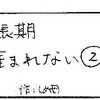 長期
産まれない②
作:しめ冊